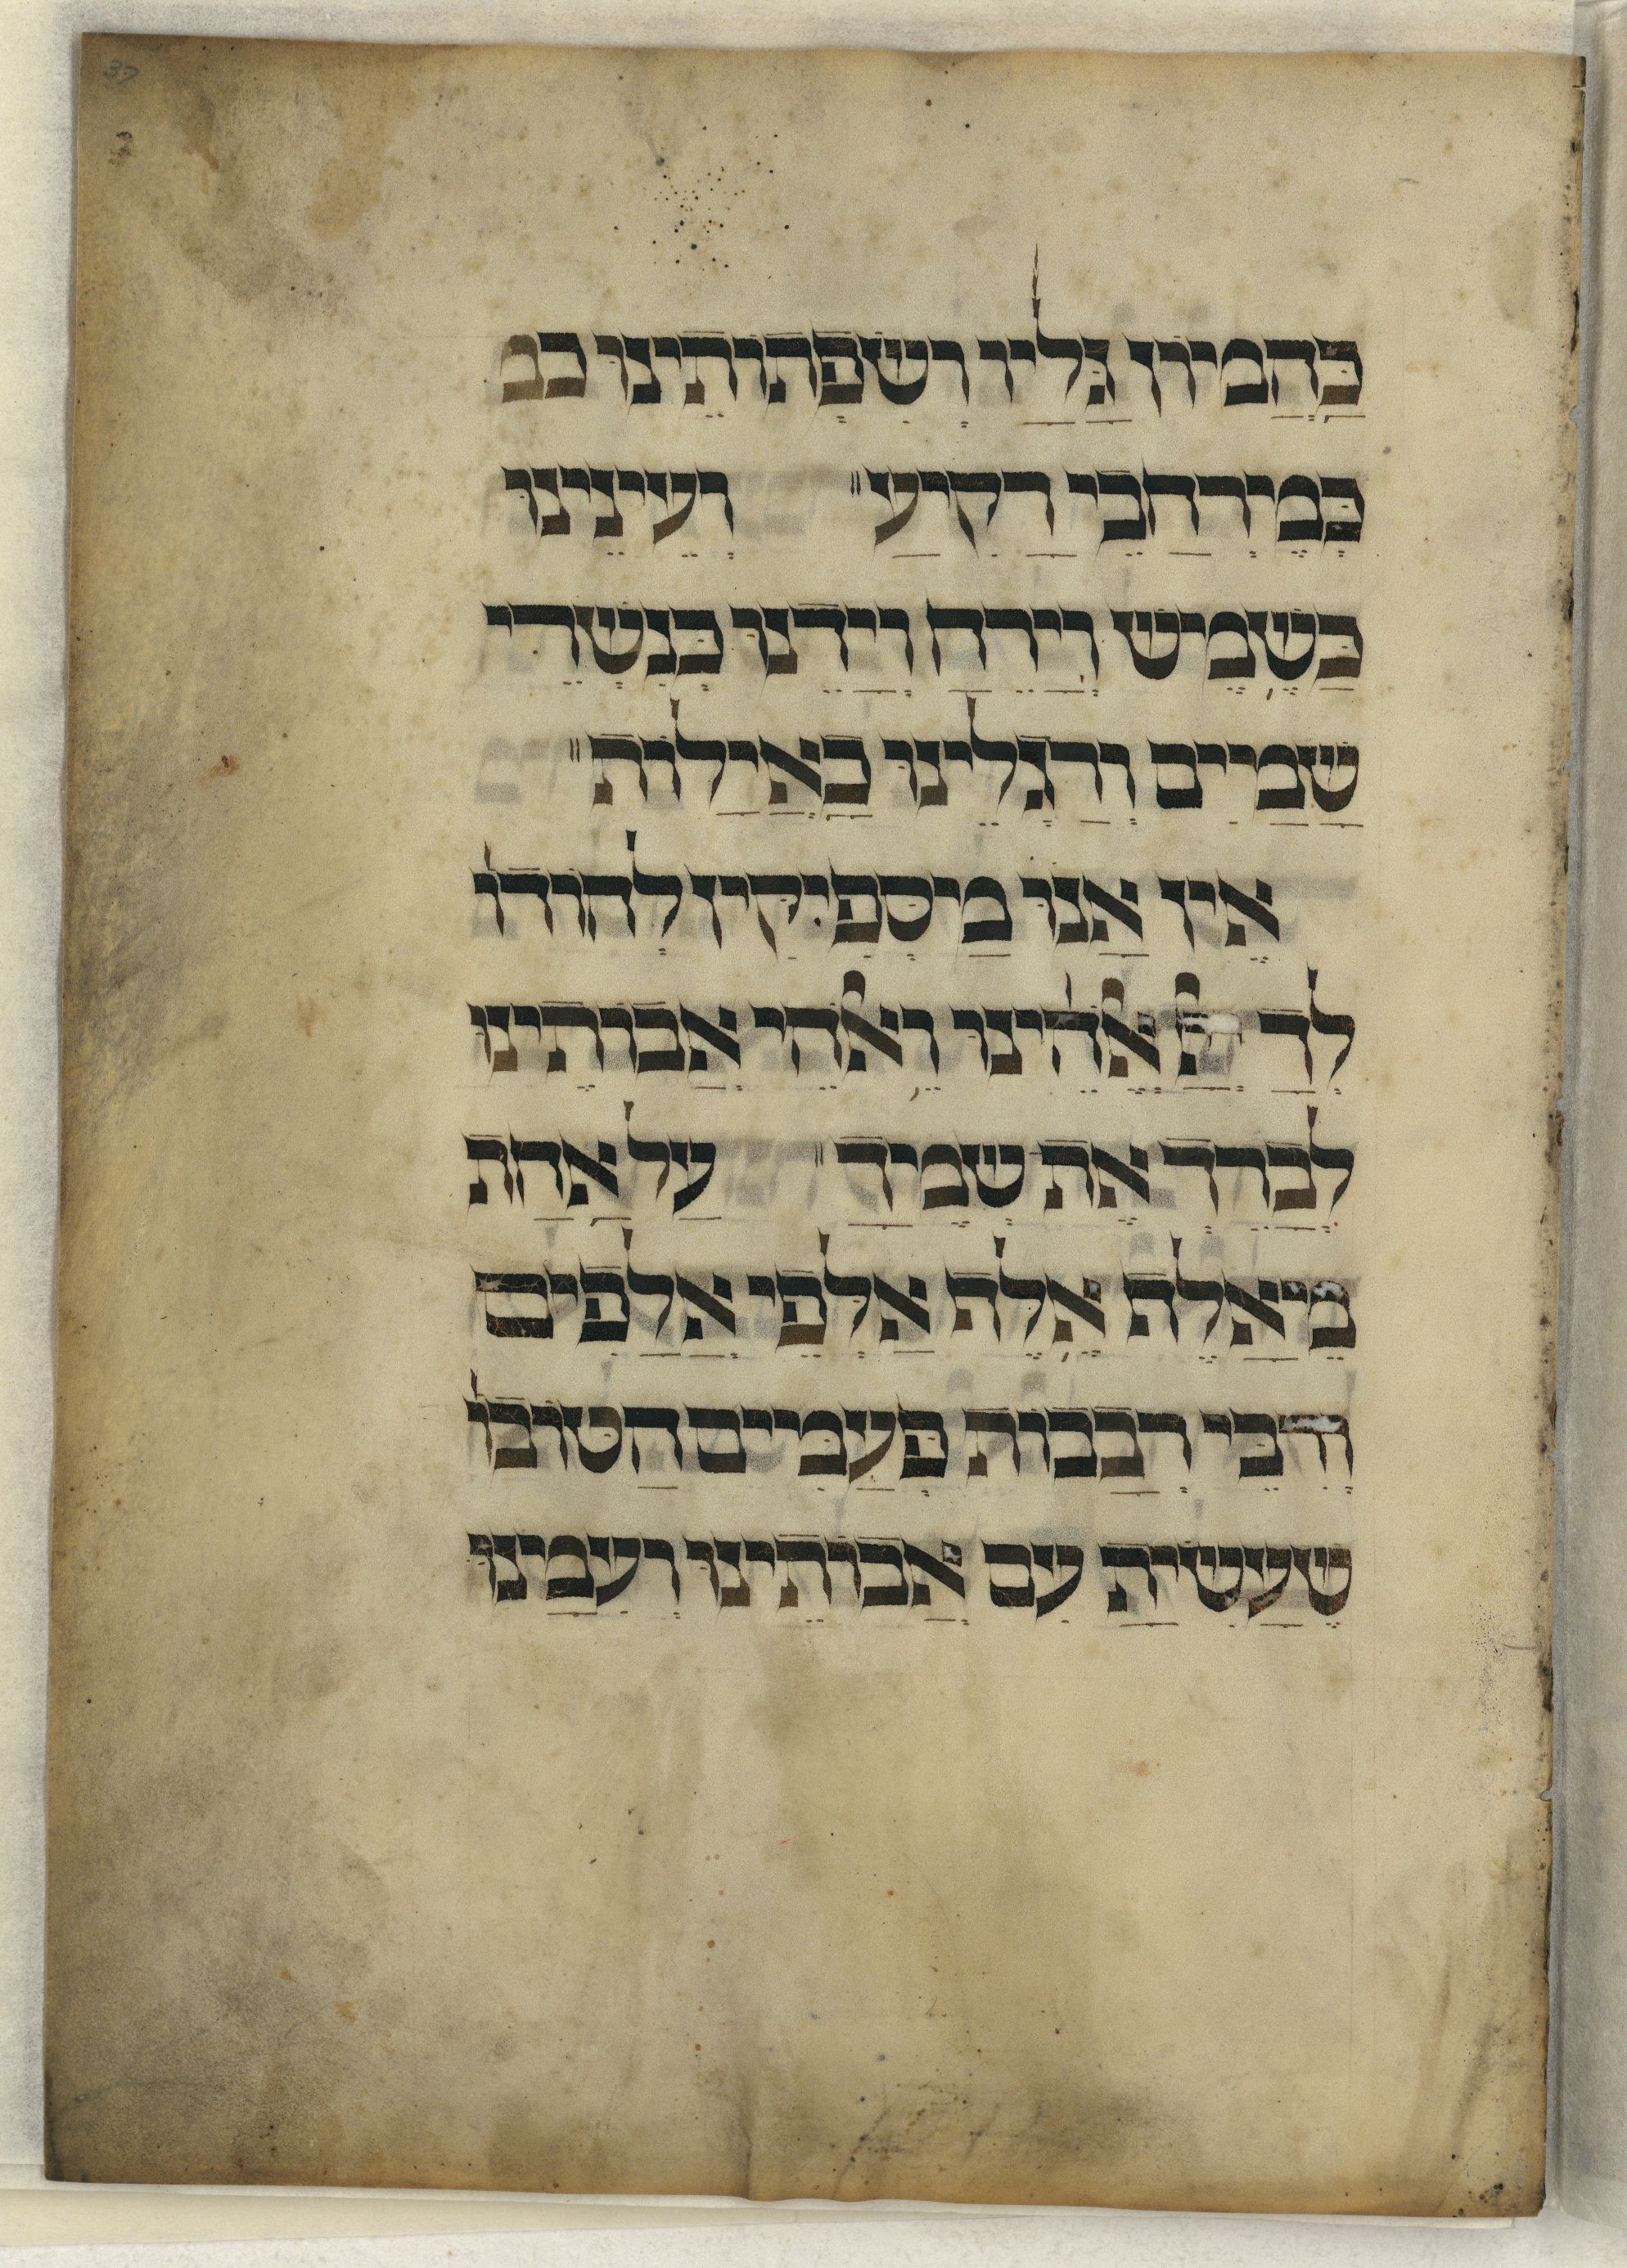 37
3
כַּהֲמיוֹן גַּלַיו וְשִׂפְתוֹתֵינוּ כמ
כְּמֶירְחַבֵי רַקִיעַ״ וְעֵינֵינוּ
כַּשֶׁמֶיש וְיָרֵחַ וְיָדֵנוּ כְּנִשְׁרֵי
שָׁמַיִם וְרַגְלֵינוּ כָאַיָלוֹת״
אֵין אַנוּ מַיסְפִיקִין לְהוֹדוֹ
לָךְ יי אֱלֹהֵינוּ וֵאלֹהֵי אֲבוֹתֵינוּ
לְבָרֵךְ אֶת שְׁמֵיךָ״ עַל אַחַת
מֵיאַלֶה אֶלֶה אַלְפֵי אֲלָפִים
וְרִבֵּי רְבָבוֹת פְּעָמִיים הַטּוֹבוֹ
שֶׁעָשִׂיתָ עִם אֲבוֹתֵינוּ וְעִמָינוּ